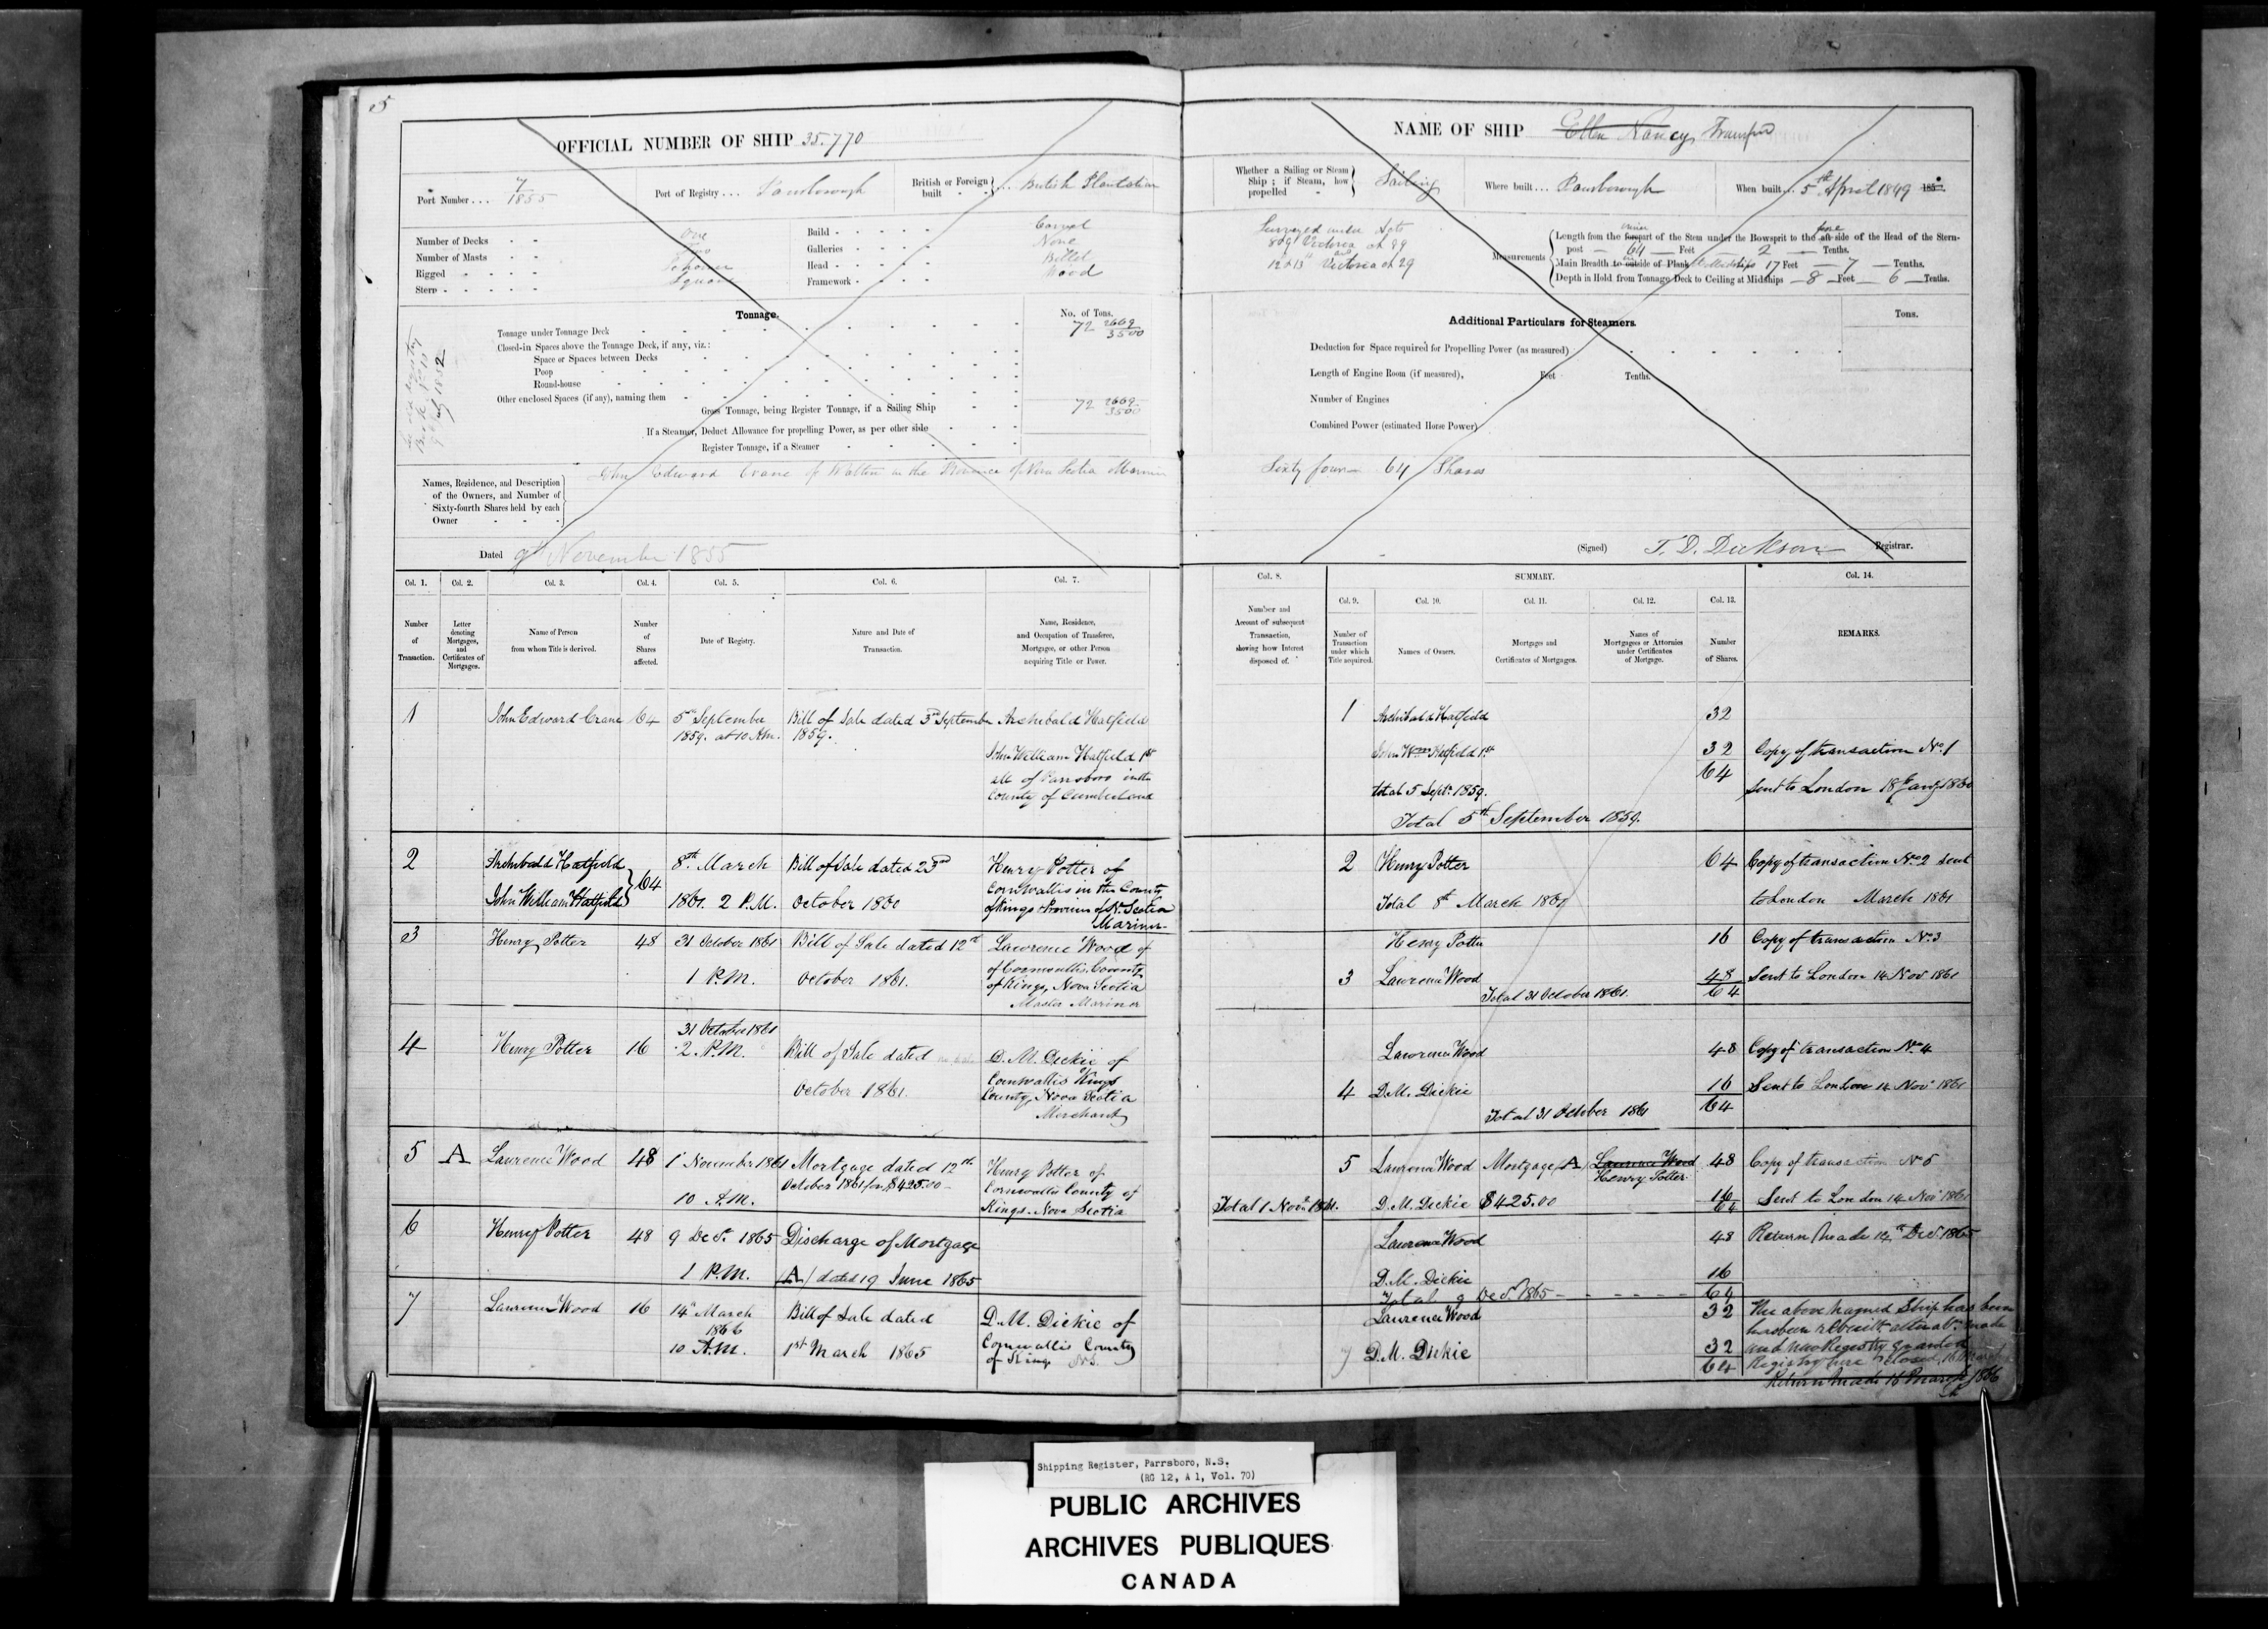 5
OFFICIAL NUMBER OF SHIP 35.770
Port Number . . . 7/1855
Port of Registry . . . Parrsborough
British or Foreign built } . . British Plantation
Number of Decks - - One
Number of Masts - - Two
Rigged - - - - Schooner
Stern - - - - - Square
Build - - - - - Carvel
Galleries - - - - None
Head - - - - - Billet
Framework - - - - Wood
Tonnage.
No. of Tons.
Tonnage under Tonnage Deck 72 2669/3500
Closed-in Spaces above the Tonnage Deck, if any, viz.:
Space or Spaces between Decks
Poop
Round-house
Other enclosed Spaces (if any), naming them
Gross Tonnage, being Register Tonnage, if a Sailing Ship 72 2669/3500
If a Steamer, Deduct Allowance for propelling Power, as per other side
Register Tonnage, if a Steamer
1852
Names, Residence, and Description of the Owners, and Number of Sixty-fourth Shares held by each Owner
John Edward Crane of Walton in the Province of Nova Scotia Mariner
Dated 9th November 1855
NAME OF SHIP Ellen Nancy
Whether a Sailing or Steam Ship; if Steam, how propelled } Sailing
Where built . . . Parrsborough
When built . . . 5th April 1849 185
Surveyed under Acts
8 & 9 Victoria ch 89
12 & 13 Victoria ch 29
Measurements
Length from the forepart of the Stem under the Bowsprit to the aft side of the Head of the Stern-
post — 64 — Feet — 2 — Tenths.
Main Breadth to outside of Plank Midships 17 Feet — 7 — Tenths.
Depth in Hold from Tonnage Deck to Ceiling at Midships — 8 — Feet — 6 — Tenths.
Additional Particulars for Steamers.
Tons.
Deduction for Space required for Propelling Power (as measured)
Length of Engine Room (if measured), Feet Tenths.
Number of Engines
Combined Power (estimated Horse Power)
Sixty four — 64 Shares
(Signed) T. D. Dickson Registrar.
Col. 1. Col. 2. Col. 3. Col. 4. Col. 5. Col. 6. Col. 7.
Number of Transaction.
Letter denoting Mortgages, and Certificates of Mortgages.
Name of Person from whom Title is derived.
Number of Shares affected.
Date of Registry.
Nature and Date of Transaction.
Name, Residence, and Occupation of Transferee, Mortgagee, or other Person acquiring Title or Power.
1 John Edward Crane 64 5th September 1859. at 10 A.m. Bill of Sale dated 3rd September 1859. Archibald Hatfield
John William Hatfield 1st
all of Parrsboro in the
County of Cumberland
2 Archibald Hatfield
John William Hatfield } 64 8th March 1861. 2 P.M. Bill of Sale dated 23rd October 1860 Henry Potter of
Cornwallis in the County
of Kings Province of N. Scotia
Mariner
3 Henry Potter 48 31 October 1861 1 P.M. Bill of Sale dated 12th October 1861. Lawrence Wood of
of Cornwallis County
of Kings, Nova Scotia
Master Mariner
4 Henry Potter 16 31 October 1861 2. P.M. Bill of Sale dated October 1861. D. M. Dickie of
Cornwallis Kings
County, Nova Scotia
Merchant
5 A Lawrence Wood 48 1 November 1861 10 A.M. Mortgage dated 12th October 1861 for $425.00 Henry Potter of
Cornwallis County of
Kings. Nova Scotia
6 Henry Potter 48 9 Decr. 1865 1 P.M. Discharge of Mortgage (A) dated 19 June 1865
7 Lawrence Wood 16 14th March 1866 10 A.M. Bill of Sale dated 1st March 1865 D. M. Dickie of
Cornwallis County
of Kings N.S.
Col. 8. SUMMARY. Col. 14.
Col. 9. Col. 10. Col. 11. Col. 12. Col. 13.
Number and Account of subsequent Transaction, showing how Interest disposed of.
Number of Transaction under which Title acquired.
Names of Owners.
Mortgages and Certificates of Mortgages.
Names of Mortgagees or Attornies under Certificates of Mortgage.
Number of Shares.
REMARKS.
1 Archibald Hatfield 32
John Wm Hatfield 1st 32 Copy of transaction No. 1
64
total 5 Sept. 1859. Sent to London 18 Jany 1860
Total 5th September 1859.
2 Henry Potter 64 Copy of transaction No 2 sent
Total 8th March 1861 to London March 1861
Henry Potter 16 Copy of transaction No. 3
3 Lawrence Wood 48 Sent to London 14 Nov 1861
Total 31 October 1861. 64
Lawrence Wood 48 Copy of transaction No. 4
4 D.M. Dickie 16 Sent to London 14 Nov 1861
Total 31 October 1861 64
5 Lawrence Wood Mortgage (A) Lawrence Wood 48 Copy of transaction No 5
Henry Potter
Total 1 Novr. 1861. D.M. Dickie $425.00 16 Sent to London 14 Nov 1861
64
Lawrence Wood 48 Return Made 12th Decr. 1865
D.M. Dickie 16
Total 9 Decr. 1865 64
Lawrence Wood 32 The above named Ship has been
has been rebuilt made
7 D.M. Dickie 32 and new Registry granted
64 Registry here closed, 16 March
Return Made 16 March 1866
Shipping Register, Parrsboro, N.S.
(RG 12, A 1, Vol. 70)
PUBLIC ARCHIVES
ARCHIVES PUBLIQUES
CANADA